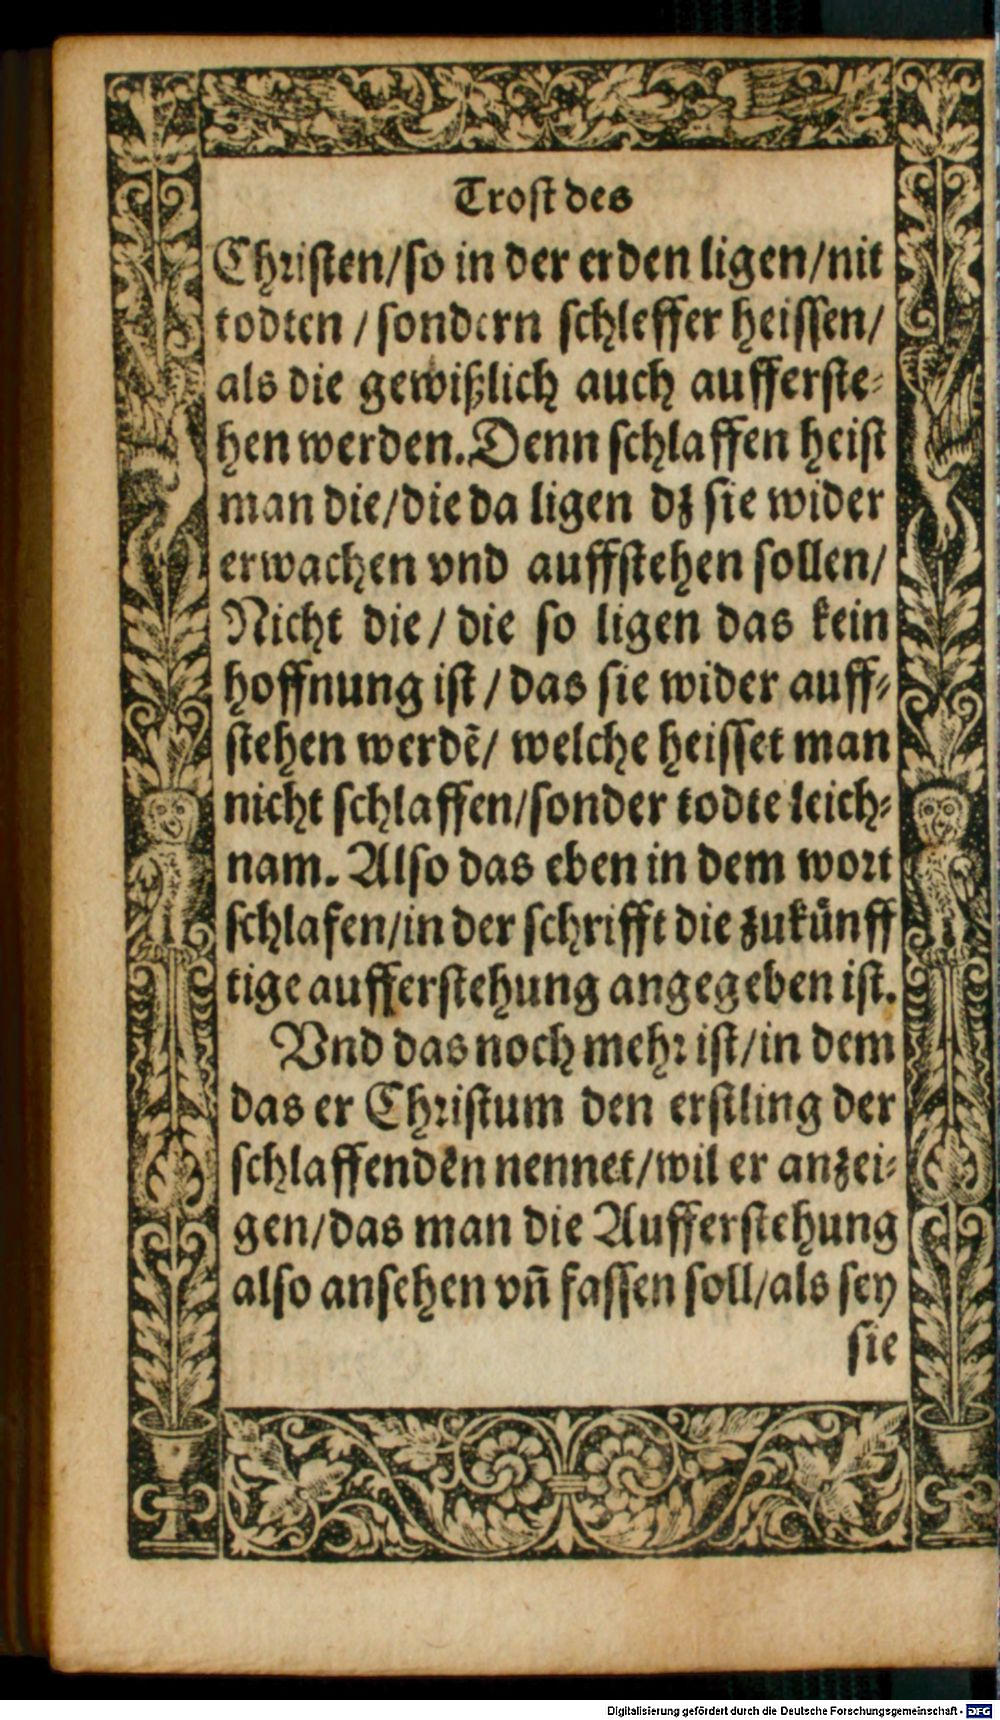 Trost des
Christen/so in der erden ligen/nit
todten / sondern schleffer heissen/
als die gewißlich auch aufferste⸗
hen werden. Denn schlaffen heist
man die/die da ligen dz sie wider
erwachen vnd auffstehen sollen/
Nicht die / die so ligen das kein
hoffnung ist / das sie wider auff⸗
stehen werdẽ/ welche heisset man
nicht schlaffen/sonder todte leich⸗
nam. Also das eben in dem wort
schlafen/in der schrifft die zukünff
tige aufferstehung angegeben ist.
Vnd das noch mehr ist/in dem
das er Christum den erstling der
schlaffenden nennet/wil er anzei⸗
gen/das man die Aufferstehung
also ansehen vñ fassen soll/als sey
sie
Digitalisierung gefördert durch die Deutsche Forschungsgemeinschaft - DFG